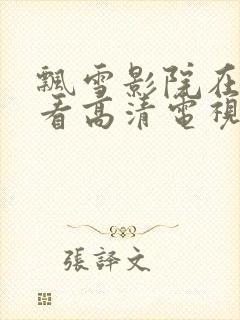 飄雪影院在
看高清電視
張譯文